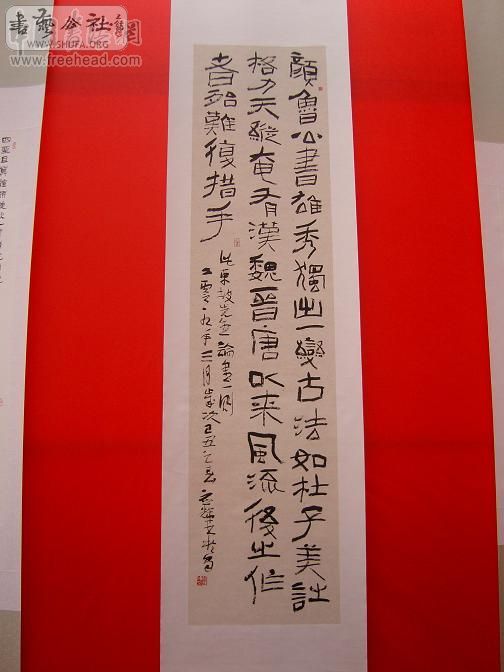 書藝公社
WWW.SHUFA.ORG
www.freehead.com
顏魯公書雄秀獨出一變古法如杜子美詩
格力天縱奄有漢魏晉唐以来風流後之作
者殆難復措手
此東坡先生論書一則
二零零九年三月歲次己丑之春